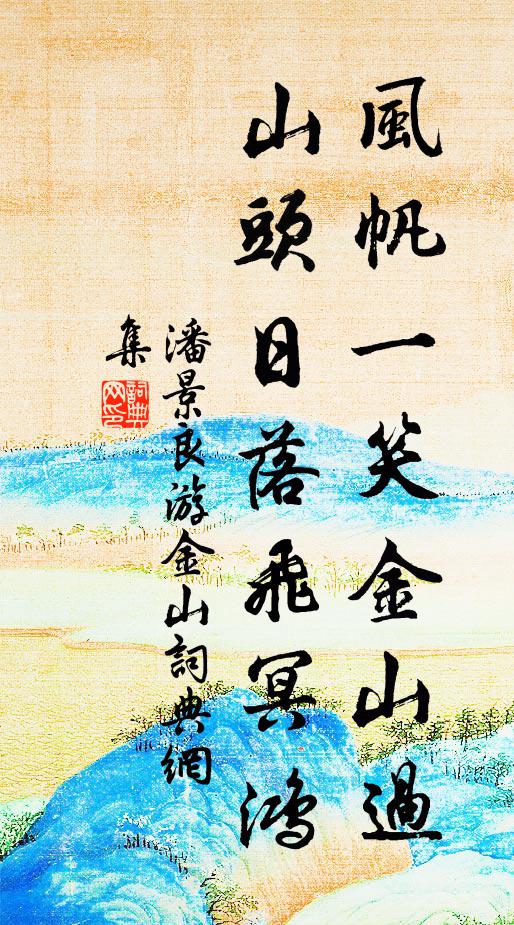 風帆一笑金山過
山頭日落飛冥鴻
潘景良游金山詞典網
集
詞典
网印